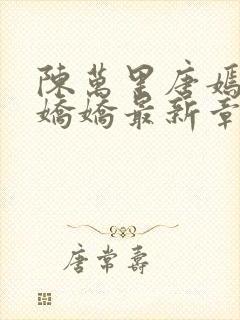 陳萬里唐嫣
嬌嬌最新章
唐常壽